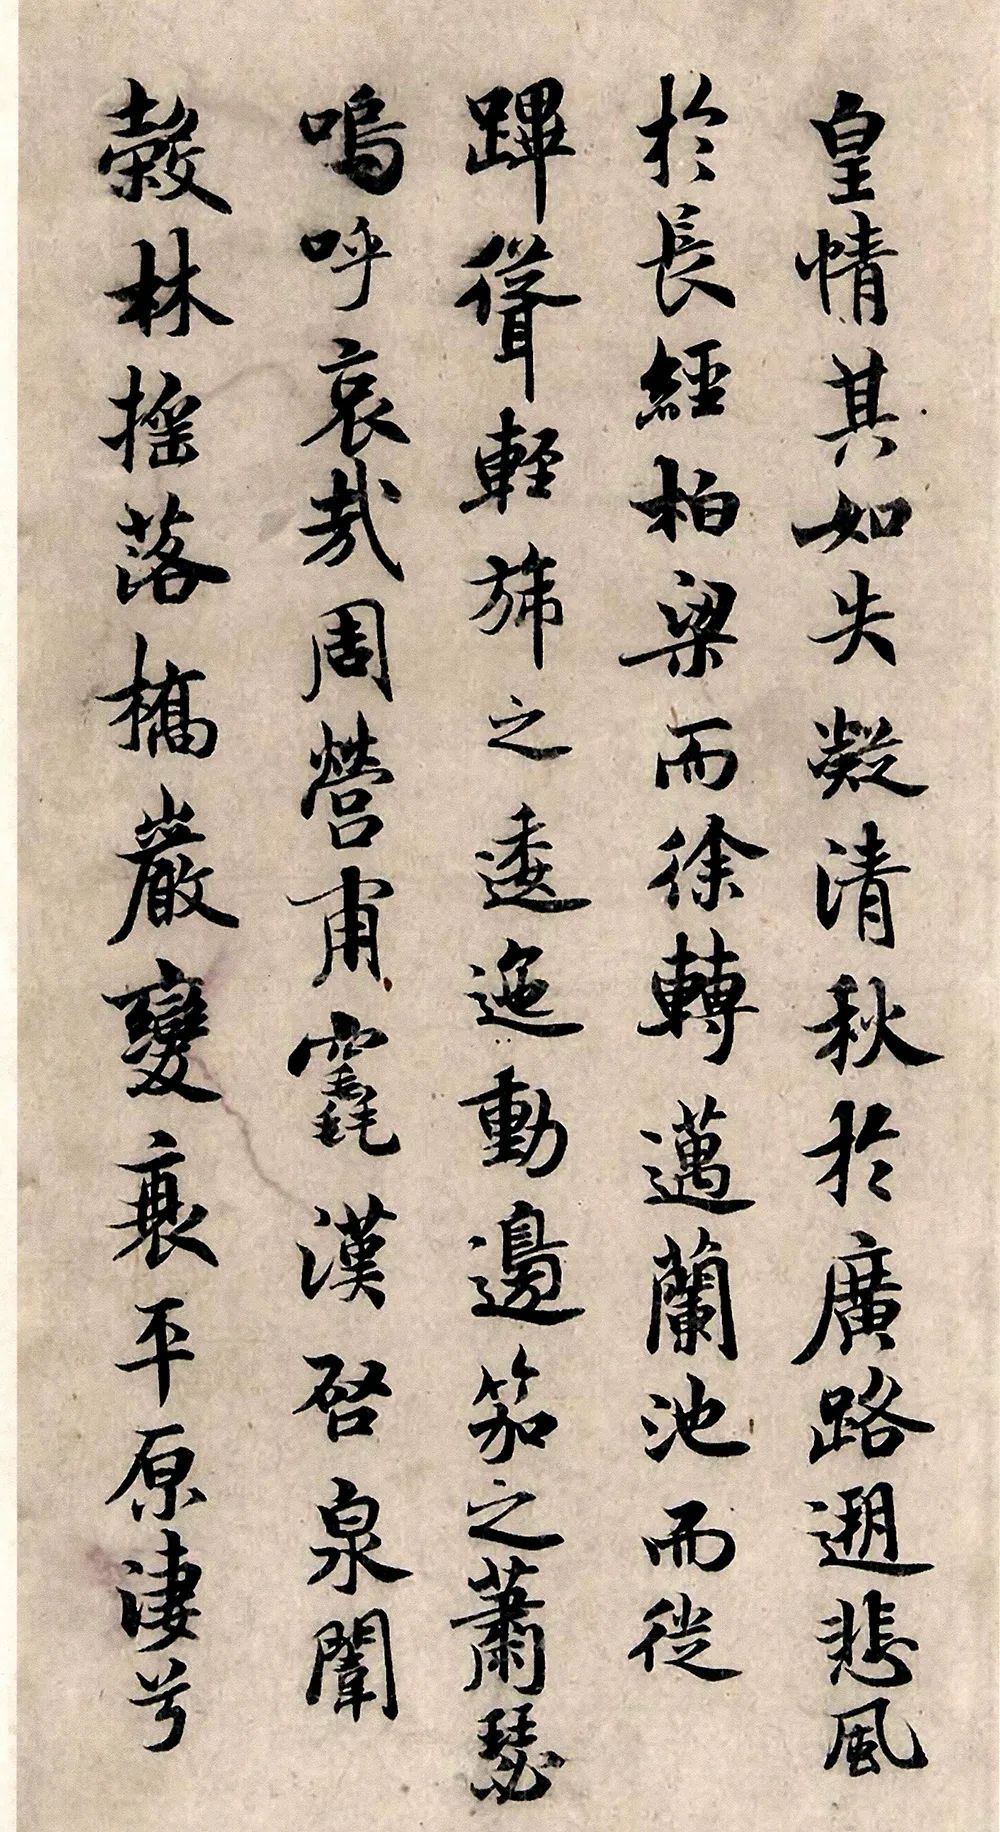 皇情其如失凝清秋於廣路遡悲風
於長經柏梁而徐轉邁蘭池而徙
蹕聳輕旆之逶迤動邊笳之蕭瑟
嗚呼哀哉周營甫竁漢啓泉闈
穀林搖落橋巖變衰平原淒兮